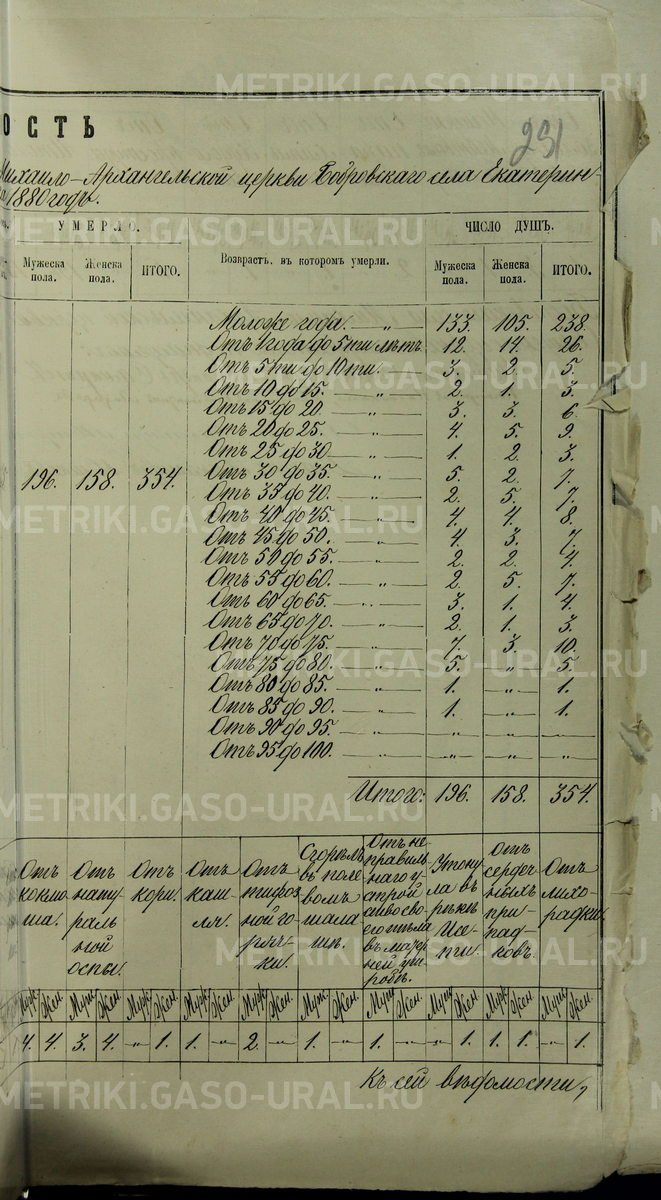 METRIKI.GASO-URAL.RU
ОСТЬ
291
Михаило-Архангельской церкви Бобровскаго села Екатерин-
1880 годъ.
УМЕРЛО.
ЧИСЛО ДУШЪ.
Мужеска пола.
Женска пола.
ИТОГО.
Возврастъ, въ которомъ умерли.
Мужеска пола.
Женска пола.
ИТОГО.
Моложе года. — „ — 133. 105. 238.
Отъ 1 года до 5ти лѣтъ. 12. 14. 26.
Отъ 5ти до 10ти. — „ — 3. 2. 5.
Отъ 10 до 15. — „ — 2. 1. 3.
Отъ 15 до 20. — „ — 3. 3. 6.
Отъ 20 до 25. — „ — 4. 5. 9.
Отъ 25 до 30 — „ — 1. 2. 3.
196. 158. 354. Отъ 30 до 35. — „ — 5. 2. 7.
Отъ 35 до 40. — „ — 2. 5. 7.
Отъ 40 до 45. — „ — 4. 4. 8.
Отъ 45 до 50. — „ — 4. 3. 7.
Отъ 50 до 55. — „ — 2. 2. 4.
Отъ 55 до 60. — „ — 2. 5. 7.
Отъ 60 до 65. — „ — 3. 1. 4.
Отъ 65 до 70. — „ — 2. 1. 3.
Отъ 70 до 75. — „ — 7. 3. 10.
Отъ 75 до 80. — „ — 5. „ 5.
Отъ 80 до 85. — „ — 1. — „ — 1.
Отъ 85 до 90. — „ — 1. — „ — 1.
Отъ 90 до 95. — „ — — „ — — „ — — „ —
Отъ 95 до 100. — „ — — „ — — „ — — „ —
Итого: 196. 158. 354.
Отъ
коклю
ша.
Отъ
нату
раль
ной
оспы.
Отъ
кори.
Отъ
каш
ля.
Отъ
тифоз
ной го
рячь
ки.
Сгорѣлъ
въ поле
вомъ
шала
шѣ.
Отъ не
правиль
наго у-
строй
ства сво
его тѣла
въ матер
ней ут-
робѣ.
Утону
ла въ
рѣкѣ
Исе-
ти.
Отъ
сердеч
ныхъ
при-
пад-
ковъ.
Отъ
лихо-
радки.
Муж. Жен. Муж. Жен. Муж. Жен. Муж. Жен. Муж. Жен. Муж. Жен. Муж. Жен. Муж. Жен. Муж. Жен. Муж. Жен.
4. 4. 3. 4. — „ — 1. 1. — „ — 2. — „ — 1. — „ — 1. — „ — — „ — 1. 1. 1. — „ — 1.
Къ сей вѣдомости,